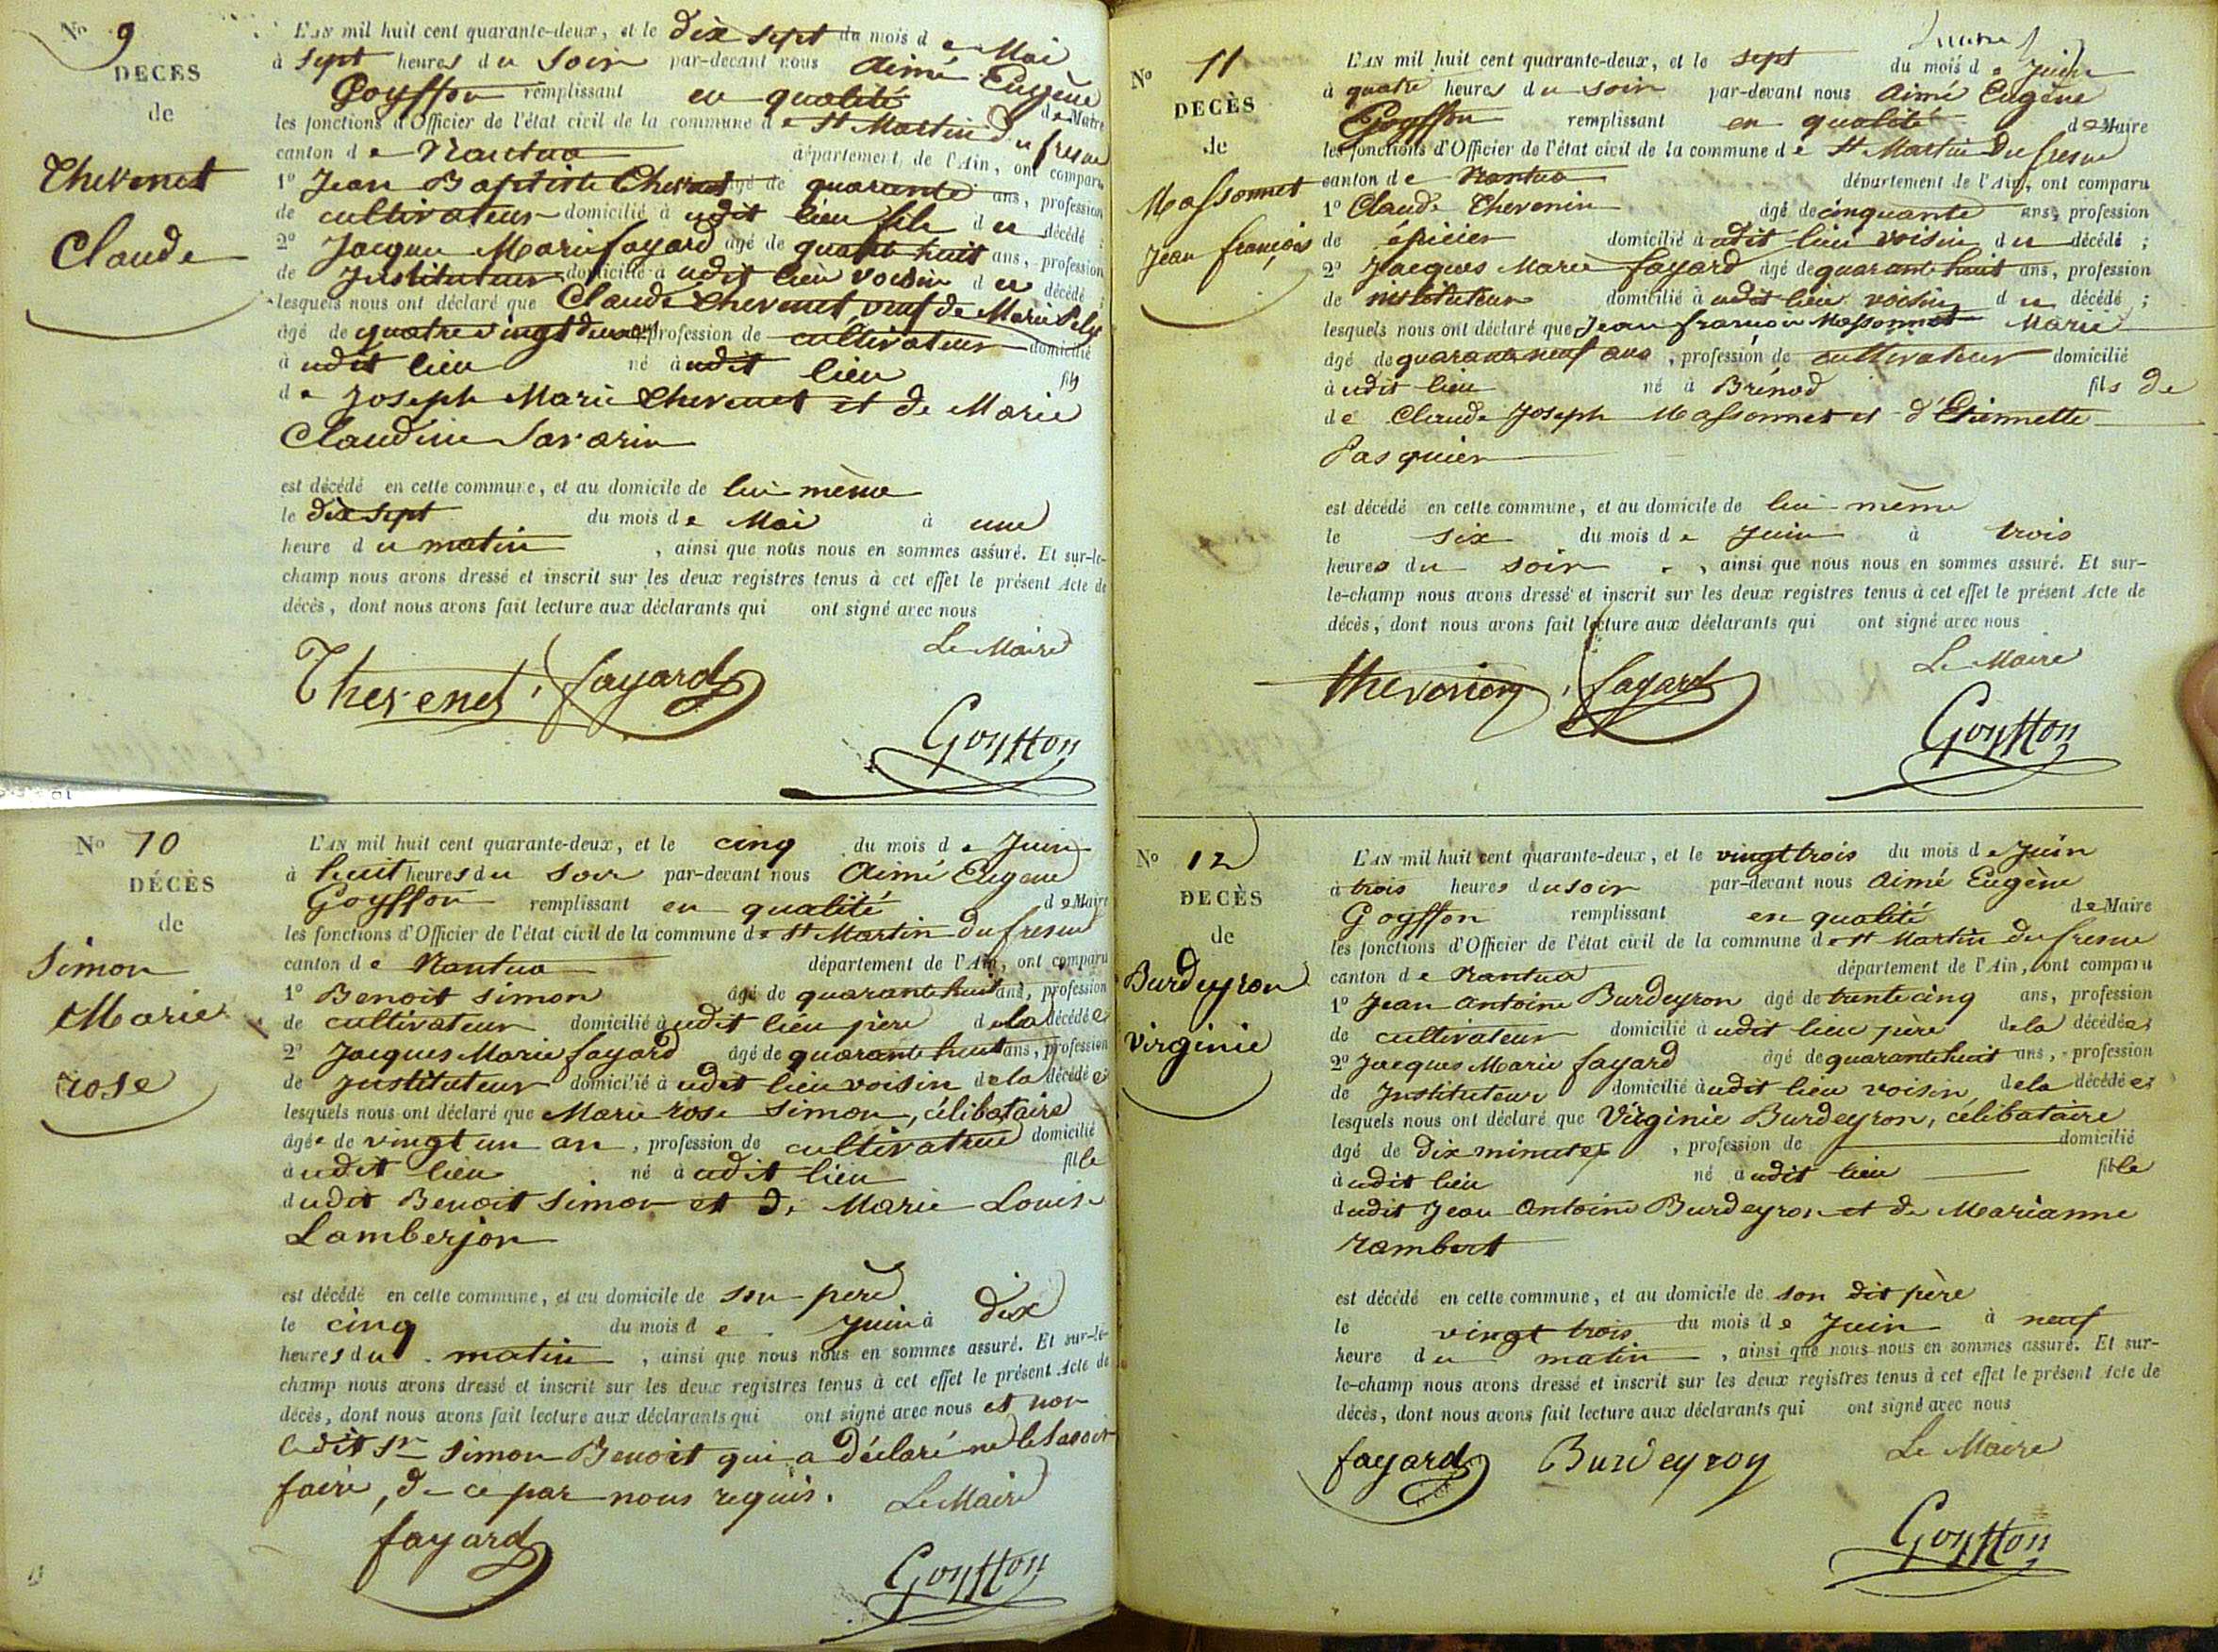 N° 9
DÉCÈS
de
Thevenet
Claude
L'AN mil huit cent quarante-deux, et le dix sept du mois de Mai
à sept heures du soir par-devant nous Aimé Eugène
Goyffon remplissant en qualité de Maire
les fonctions d'Officier de l'état civil de la commune de St Martin du fresne
canton de Nantua département de l'Ain, ont comparu
1° Jean Baptiste Thevenet âgé de quarante ans, profession
de cultivateur domicilié à udit lieu fils du décédé ;
2° Jacques Marie fayard âgé de quarante huit ans, profession
de Instituteur domicilié à udit lieu voisin du décédé ;
lesquels nous ont déclaré que Claude Thevenet, veuf de Marie
âgé de quatre vingt deux ans profession de cultivateur domicilié
à udit lieu né à udit lieu fils
de Joseph Marie Thevenet et de Marie
Claudine Savarin
est décédé en cette commune, et au domicile de lui même
le dix sept du mois de Mai à une
heure du matin , ainsi que nous nous en sommes assuré. Et sur-le-
champ nous avons dressé et inscrit sur les deux registres tenus à cet effet le présent Acte de
décès, dont nous avons fait lecture aux déclarants qui ont signé avec nous
Le Maire
Thevenet fayard
Goyffon
N° 10
DÉCÈS
de
Simon
Marie
rose
L'AN mil huit cent quarante-deux, et le cinq du mois de Juin
à huit heures du soir par-devant nous Aimé Eugène
Goyffon remplissant en qualité de Maire
les fonctions d'Officier de l'état civil de la commune de St Martin du fresne
canton de Nantua département de l'Ain, ont comparu
1° Benoit Simon âgé de quarante huit ans, profession
de cultivateur domicilié à udit lieu père de la décédée
2° Jacques Marie fayard âgé de quarante huit ans, profession
de Instituteur domicilié à udit lieu voisin de la décédée
lesquels nous ont déclaré que Marie rose Simon, célibataire
âgée de vingt un an , profession de cultivatrice domicilié
à udit lieu né à udit lieu fille
dudit Benoit Simon et de Marie Louise
Lamberjon
est décédé en cette commune, et au domicile de son père
le cinq du mois de Juin à dix
heures du matin , ainsi que nous nous en sommes assuré. Et sur-le-
champ nous avons dressé et inscrit sur les deux registres tenus à cet effet le présent Acte de
décès, dont nous avons fait lecture aux déclarants qui ont signé avec nous et non
ledit Sr Simon Benoit qui a déclaré ne le savoir
faire, de ce par nous requis. Le Maire
fayard
Goyffon
N° 11
DECÈS
de
Massonnet
Jean françois
L'AN mil huit cent quarante-deux, et le sept du mois de Juin
à quatre heures du soir par-devant nous Aimé Eugène
Goyffon remplissant en qualité de Maire
les fonctions d'Officier de l'état civil de la commune de St Martin Du fresne
canton de Nantua département de l'Ain, ont comparu
1° Claude Thevenin âgé de cinquante ans, profession
de épicier domicilié à udit lieu voisin du décédé ;
2° Jacques Marie fayard âgé de quarante huit ans, profession
de instituteur domicilié à udit lieu voisin du décédé ;
lesquels nous ont déclaré que Jean françois Massonnet Marié
âgé de quarante neuf ans , profession de cultivateur domicilié
à udit lieu né à Brénod fils de
de Claude Joseph Massonnet et d'Etiennette
Pasquier
est décédé en cette commune, et au domicile de lui même
le six du mois de Juin à trois
heures du soir , ainsi que nous nous en sommes assuré. Et sur-
le-champ nous avons dressé et inscrit sur les deux registres tenus à cet effet le présent Acte de
décès, dont nous avons fait lecture aux déclarants qui ont signé avec nous
Le Maire
thevenin fayard
Goyffon
N° 12
DECÈS
de
Burdeyron
Virginie
L'AN mil huit cent quarante-deux, et le vingt trois du mois de Juin
à trois heures du soir par-devant nous Aimé Eugène
Goyffon remplissant en qualité de Maire
les fonctions d'Officier de l'état civil de la commune de St Martin du fresne
canton de Nantua département de l'Ain, ont comparu
1° Jean Antoine Burdeyron âgé de trente cinq ans, profession
de cultivateur domicilié à udit lieu père de la décédée ;
2° Jacques Marie fayard âgé de quarante huit ans, profession
de Instituteur domicilié à udit lieu voisin de la décédée ;
lesquels nous ont déclaré que Virginie Burdeyron, célibataire
âgé de dix minutes , profession de domicilié
à udit lieu né à udit lieu fille
dudit Jean Antoine Burdeyron et de Marianne
rambert
est décédé en cette commune, et au domicile de son dit père
le vingt trois du mois de Juin à neuf
heure du matin , ainsi que nous nous en sommes assuré. Et sur-
le-champ nous avons dressé et inscrit sur les deux registres tenus à cet effet le présent Acte de
décès, dont nous avons fait lecture aux déclarants qui ont signé avec nous
fayard Burdeyron Le Maire
Goyffon